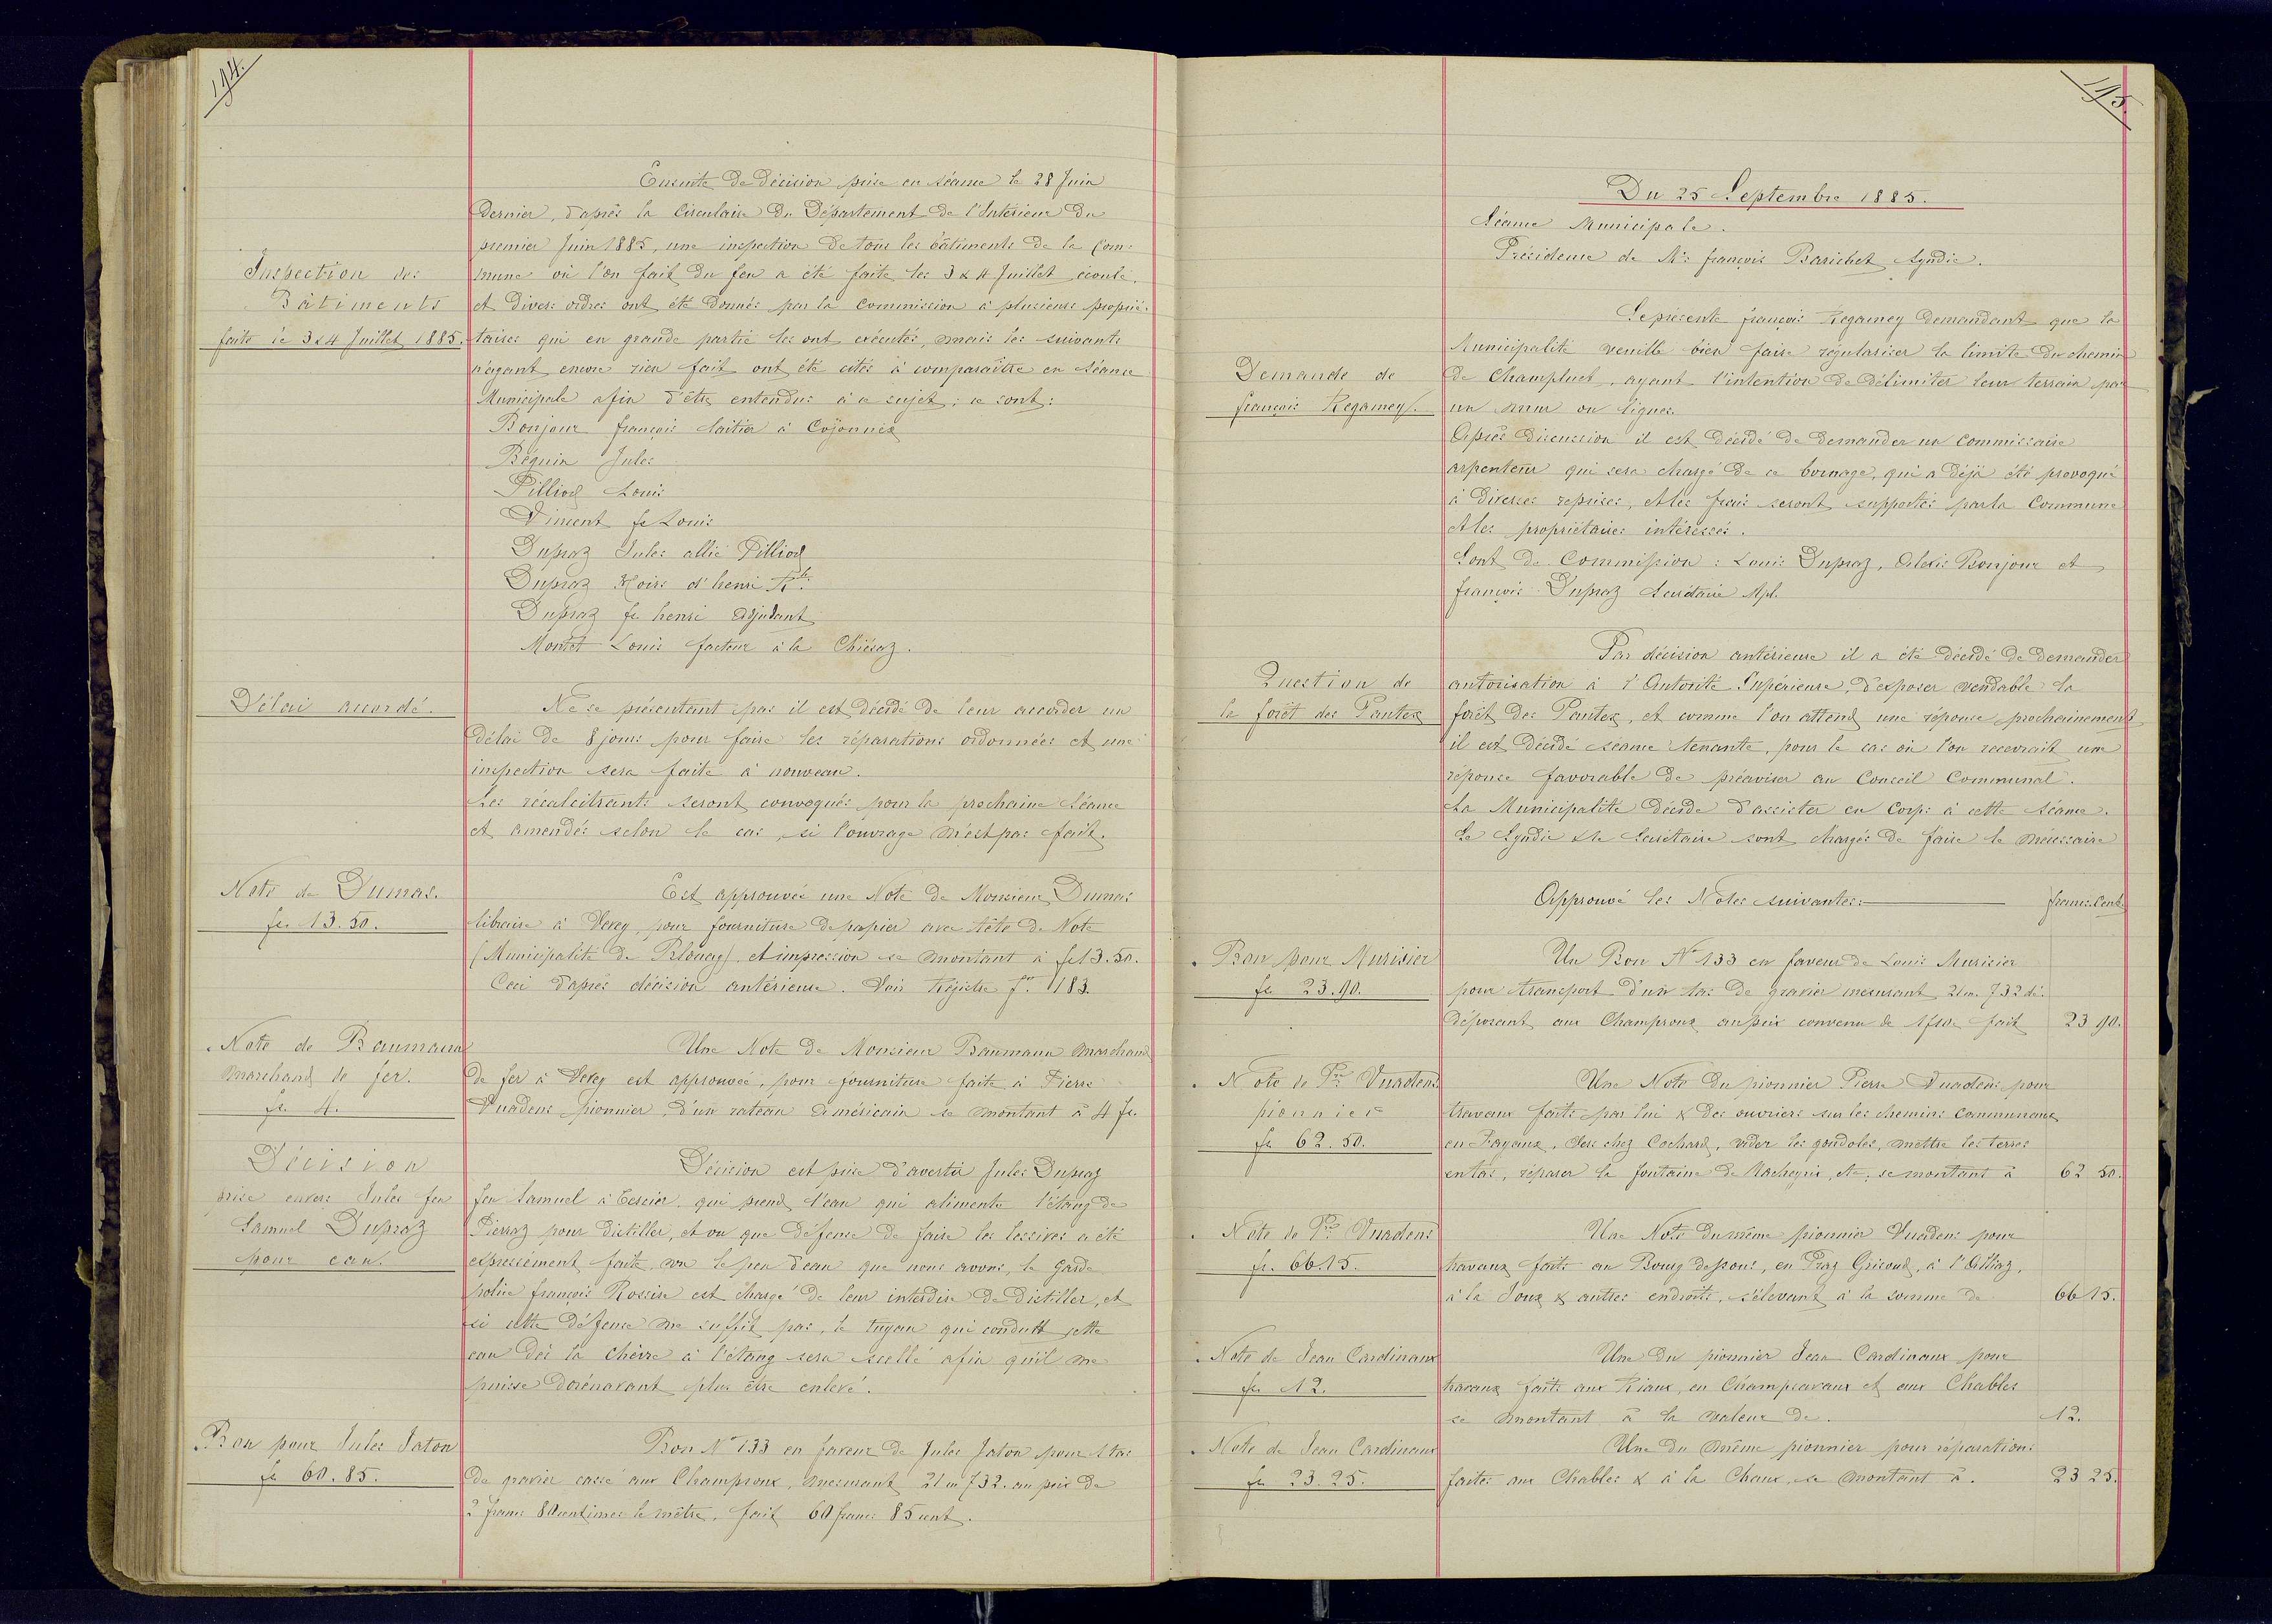 194.
Ensuite de décision prise en séance le 28 Juin
dernier, d'après la Circulaire du Département de l'Intérieur du
premier Juin 1885, une inspection de tous les bâtiments de la Com-
Inspection des
Bâtiments
faite le 3 & 4 Juillet 1885.
mune où l'on fait du feu a été faite les 3 & 4 Juillet écoulé,
et divers ordres ont été donnés par la Commission à plusieurs proprié-
taires qui en grande partie les ont exécutés, mais les suivants
n'ayant encore rien fait ont été cités à comparaître en Séance
Municipale afin d'être entendus à ce sujet; ce sont:
Bonjour françois laitier à Cojonnex
Béguin Jules
Pilliod Louis
Vincent fs Louis
Dupraz Jules allié Pilliod
Dupraz Hoirs d'henri
Dupraz fs henri Adjudant
Montet Louis facteur à la Chiésaz.
Délai accordé.
Ne se présentant pas il est décidé de leur accorder un
délai de 8 jours pour faire les réparations ordonnées et une
inspection sera faite à nouveau.
Les récalcitrants seront convoqués pour la prochaine Séance
et amendés selon le cas, si l'ouvrage n'est pas fait.
Note de Dumas.
fr. 13.50.
Est approuvée une Note de Monsieur Dumas
libraire à Vevey, pour fourniture de papier avec tête de Note
(Municipalité de Blonay) et impression se montant à fr 13.50.
Ceci d'après décision antérieure. Voir Régistre fo 183.
Note de Baumann
marchand de fer.
fr. 4.
Une Note de Monsieur Baumann marchand
de fer à Vevey est approuvée, pour fourniture faite à Pierre
Vuadens pionnier, d'un rateau Américain se montant à 4 fr.
Décision
prise envers Jules feu
Samuel Dupraz
pour eau.
Décision est prise d'avertir Jules Dupraz
feu Samuel à Tercier qui prend l'eau qui alimente l'étang de
Pierraz pour distiller, et vu que défense de faire les lessives a été
expressément faite, vu le peu d'eau que nous avons, le garde
police françois Rossire est chargé de leur interdire de distiller, et
si cette défense ne suffit pas, le tuyau qui conduit cette
eau dès la chèvre à l'étang sera scellé afin qu'il ne
puisse dorénavant plus être enlevé.
Bon pour Jules Jaton
fr 60.85.
Bon No 133 en faveur de Jules Jaton pour 1 tas
de gravier cassé aux Champroux, mesurant 21 m 732. au prix de
2 francs 80 centimes le mètre, fait 60 francs 85 cent.
195.
Du 25 Septembre 1885.
Séance Municipale.
Présidence de Mr françois Barichet Syndic.
Demande de
françois Regamey.
Se présente françois Regamey demandant que la
Municipalité veuille bien faire régulariser la limite du chemin
de Champluet, ayant l'intention de délimiter leur terrain par
un mur ou lignes.
Après discussion il est décidé de demander un Commissaire
arpenteur qui sera chargé de ce bornage, qui a déjà été provoqué
à diverses reprises, et les frais seront supportés par la Commune
et les propriétaires intéressés.
Sont de Commission: Louis Dupraz, Alexis Bonjour et
françois Dupraz Secrétaire Mpl.
Question de
la forêt des Pautex
Par décision antérieure il a été décidé de demander
autorisation à l'Autorité Supérieure, d'exposer vendable la
forêt des Pautex, et comme l'on attend une réponse prochainement
il est décidé séance tenante, pour le cas où l'on recevrait une
réponse favorable de préaviser au Conseil Communal.
La Municipalité décide d'assister en Corps à cette Séance.
Le Syndic & le Secrétaire sont chargés de faire le nécessaire
Approuvé les Notes suivantes: francs. Cent.
Bon pour Murisier
fr 23.90.
Un Bon No 133 en faveur de Louis Murisier
pour transport d'un tas de gravier mesurant 21 m. 732 dé.
déposant aux Champroux au prix convenu de 1f10c fait 23 90.
Note de Pre Vuadens
pionnier
fr 62.50.
Une Note du pionnier Pierre Vuadens pour
travaux faits par lui & des ouvriers sur les chemins communaux
en Fayaux, dès chez Cochard, vider les gondoles, mettre les terres
en tas, réparer la fontaine de etc, se montant à 62 50.
Note de Pre Vuadens
fr. 66.15.
Une Note du même pionnier Vuadens pour
travaux faits au Bourg dessous, en Praz Grisoud, à l'Alliaz,
à la Joux & autres endroits, s'élevant à la somme de 66 15.
Note de Jean Cardinaux
fr 12.
Une du pionnier Jean Cardinaux pour
travaux faits aux Riaux, en Champsavaux et aux Chables
se montant à la valeur de. 12.
Note de Jean Cardinaux
fr 23.25.
Une du même pionnier pour réparations
faites aux Chables & à la Chaux, se montant à. 23 25.